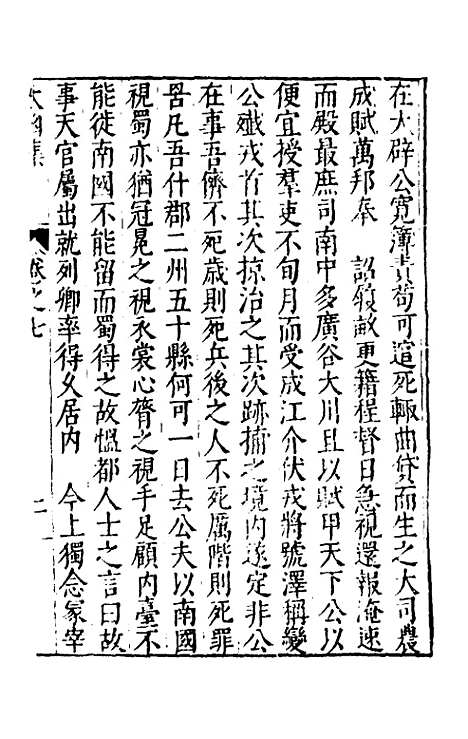 在大辟公寬簿責苟可逭死輙曲貸而生之大司農
成賦萬邦奉　詔覈畝更籍程督日急視還報淹速
而殿最庶司南中多廣谷大川且以賦甲天下公以
便宜授羣吏不旬月而受成江介伏戎將號澤稱變
公殱戎首其次掠治之其次跡捕之境内遂定非公
在事吾儕不死歲則死兵後之人不死厲階則死罪
罟凡吾什郡二州五十縣何可一日去公夫以南國
視蜀亦猶冠冕之視衣裳心膂之視手足顧内臺不
能徙南國不能留而蜀得之故慍都人士之言曰故
事天官屬出就列卿率得久居内　今上獨念冢宰
太函集　卷之七　二